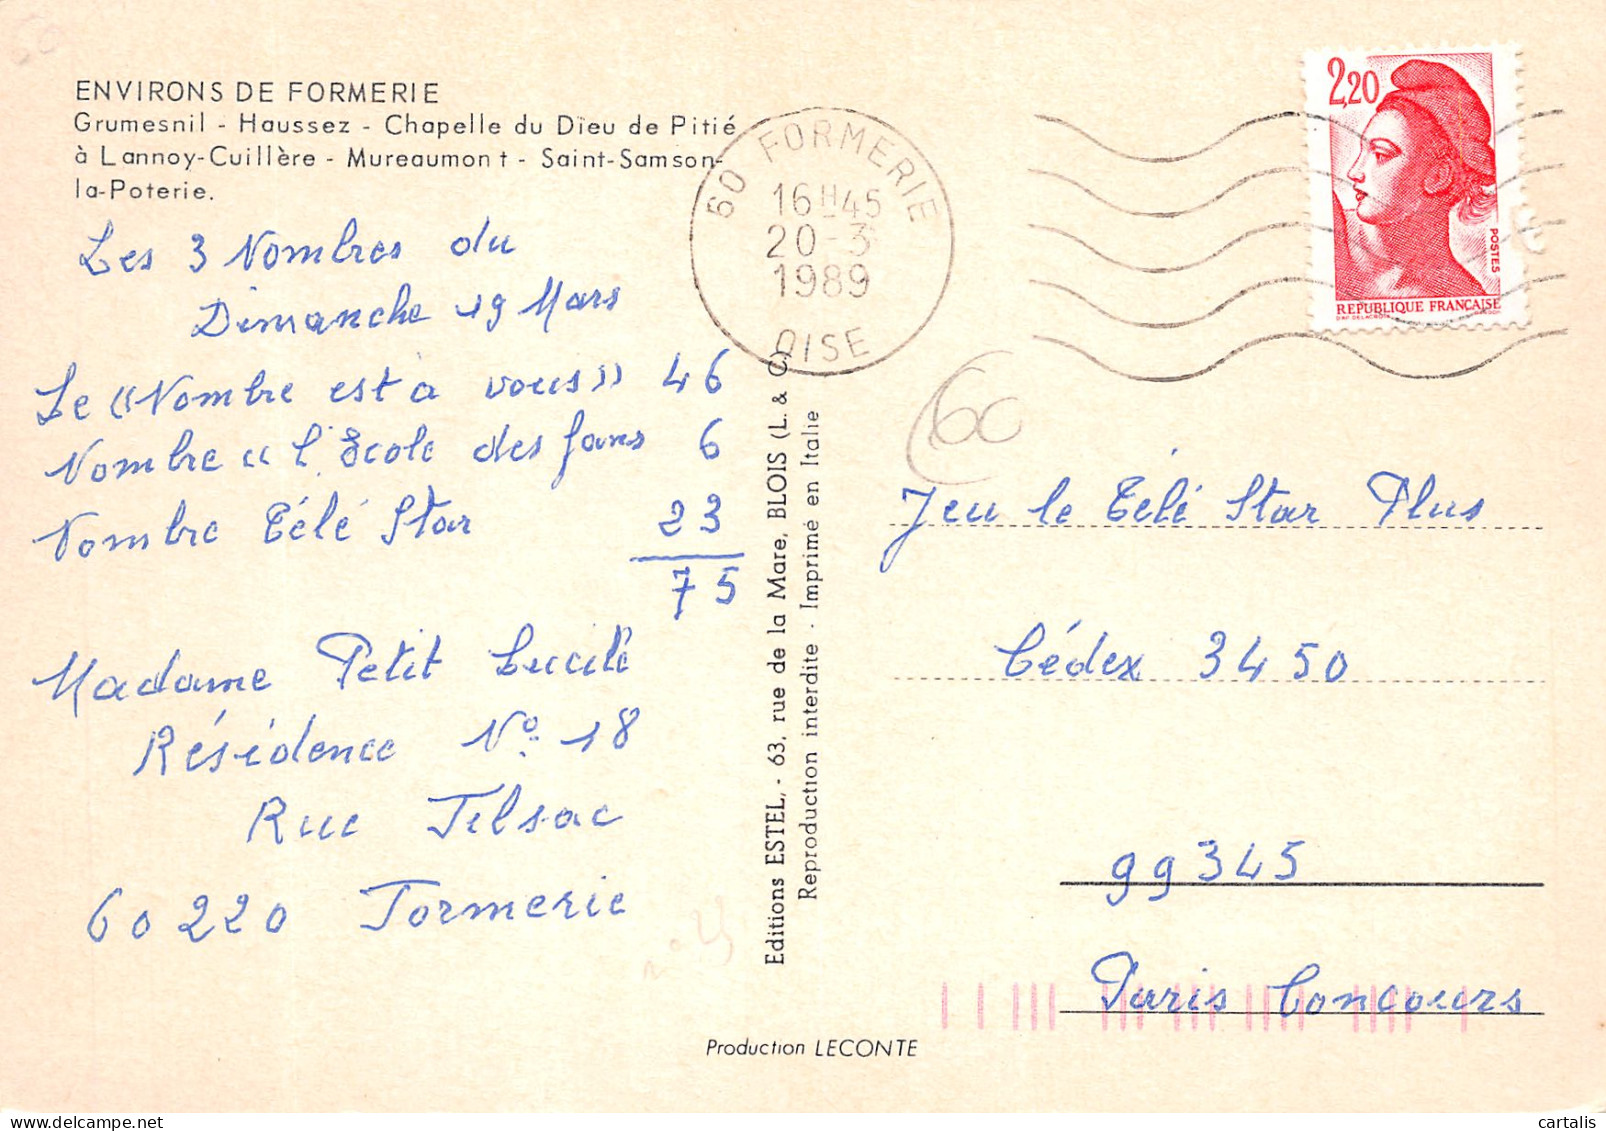 ENVIRONS DE FORMERIE
Grumesnil - Haussez - Chapelle du Dieu de Pitié
à Lannoy-Cuillère - Mureaumont - Saint-Samson-
la-Poterie.
Les 3 Nombres du
Dimanche 19 Mars
Le «Nombre est à vous» 46
Nombre «l'Ecole des fans 6
Nombre Télé Star 23
75
Madame Petit Lucile
Résidence N° 18
Rue Jelsac
60220 Formerie
60 FORMERIE
16H45
20-3
1989
OISE
2,20
POSTES
REPUBLIQUE FRANÇAISE
60
Editions ESTEL, - 63, rue de la Mare, BLOIS (L. & C)
Reproduction interdite - Imprimé en Italie
Jeu le Télé Star Plus
Cédex 3450
99345
Paris Concours
Production LECONTE
cartalis